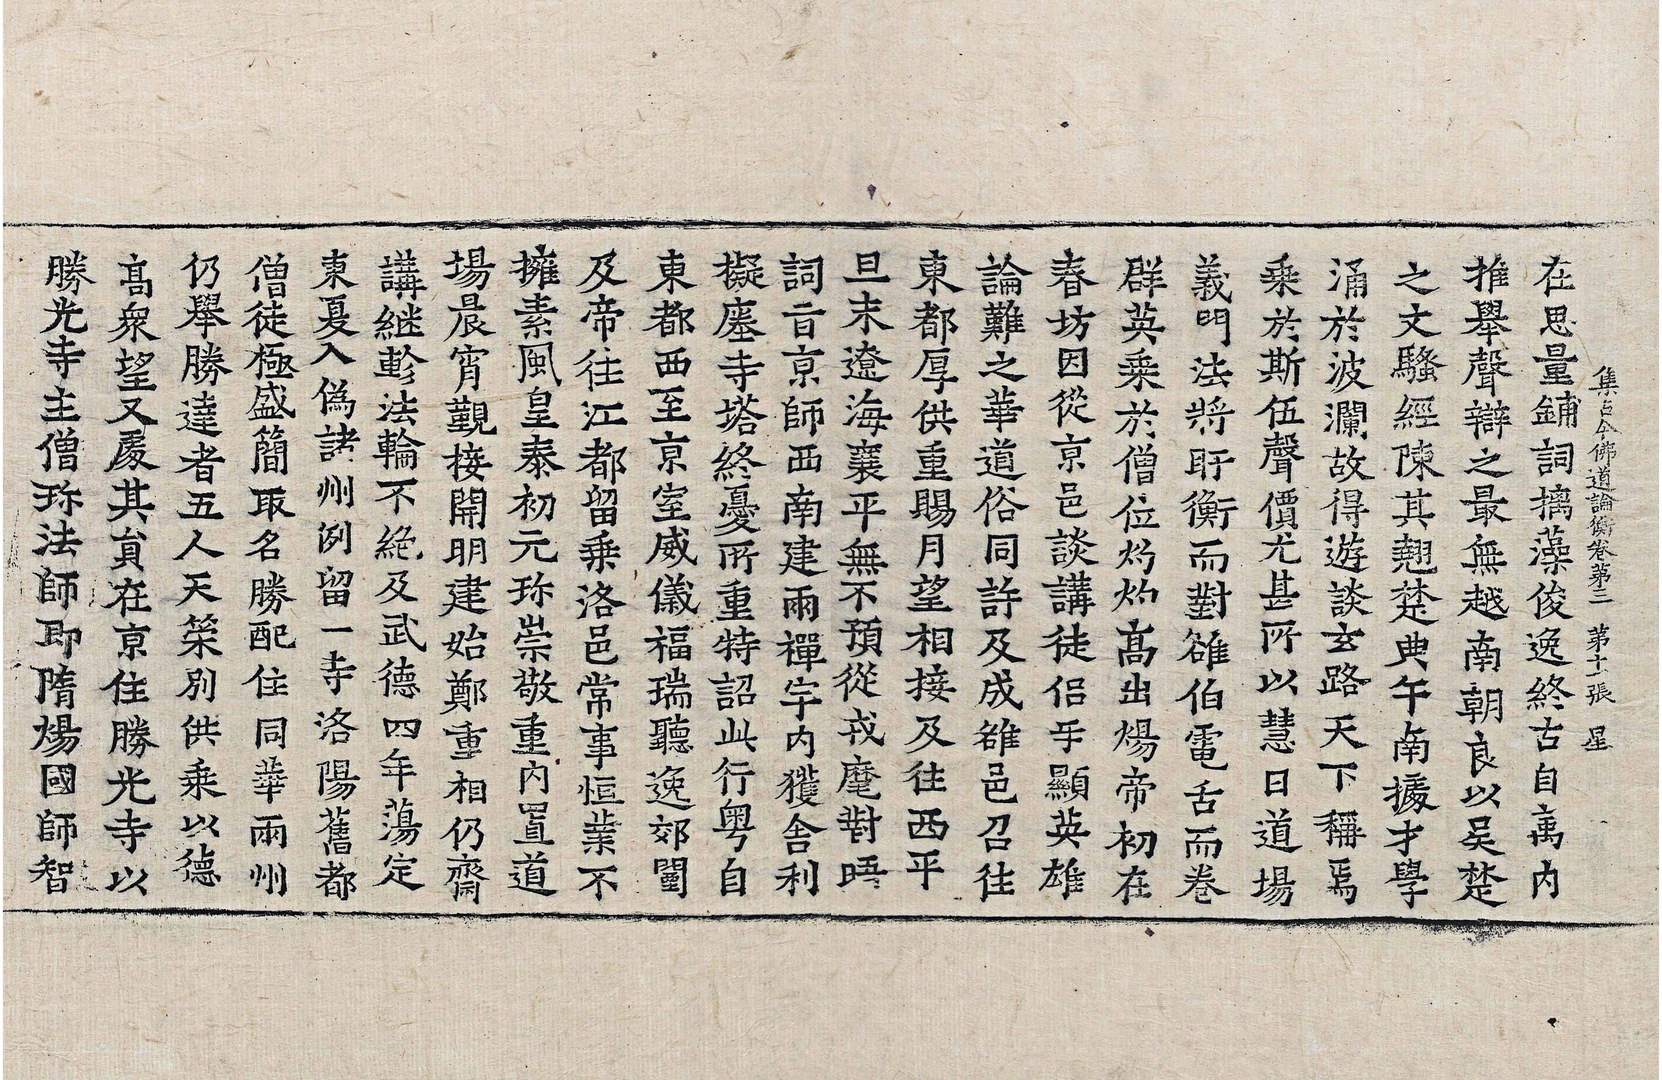 集古今佛道論衡卷第三　第十一張　星
在思量鋪詞摛藻俊逸終古自寓內
推舉聲辯之最無越南朝良以吳楚
之文騷經陳其翹楚典午南據才學
涌於波瀾故得遊談玄路天下稱焉
乘於斯伍聲價尤甚所以慧日道場
義門法將盱衡而對雒伯電舌而卷
群英乘於僧位灼灼高出煬帝初在
春坊因從京邑談講徒侶乎顯英雄
論難之華道俗同許及成雒邑召往
東都厚供重賜月望相接及往西平
旦末遼海襄平無不預從戎麾對晤
詞旨京師西南建兩禪宇內獲舍利
擬塵寺塔終憂所重特詔此行粵自
東都西至京室威儀福瑞聽逸郊闉
及帝往江都留乘洛邑常事恒業不
擁素風皇泰初元珎崇敬重內置道
場晨宵觀接開明建始鄭重相仍齋
講繼軫法輪不絕及武德四年蕩定
東夏入偽諸州例留一寺洛陽舊都
僧徒極盛簡取名勝配住同華兩州
仍舉勝達者五人天策別供乘以德
高衆望又處其員在京住勝光寺以
勝光寺主僧珎法師即隋煬國師智